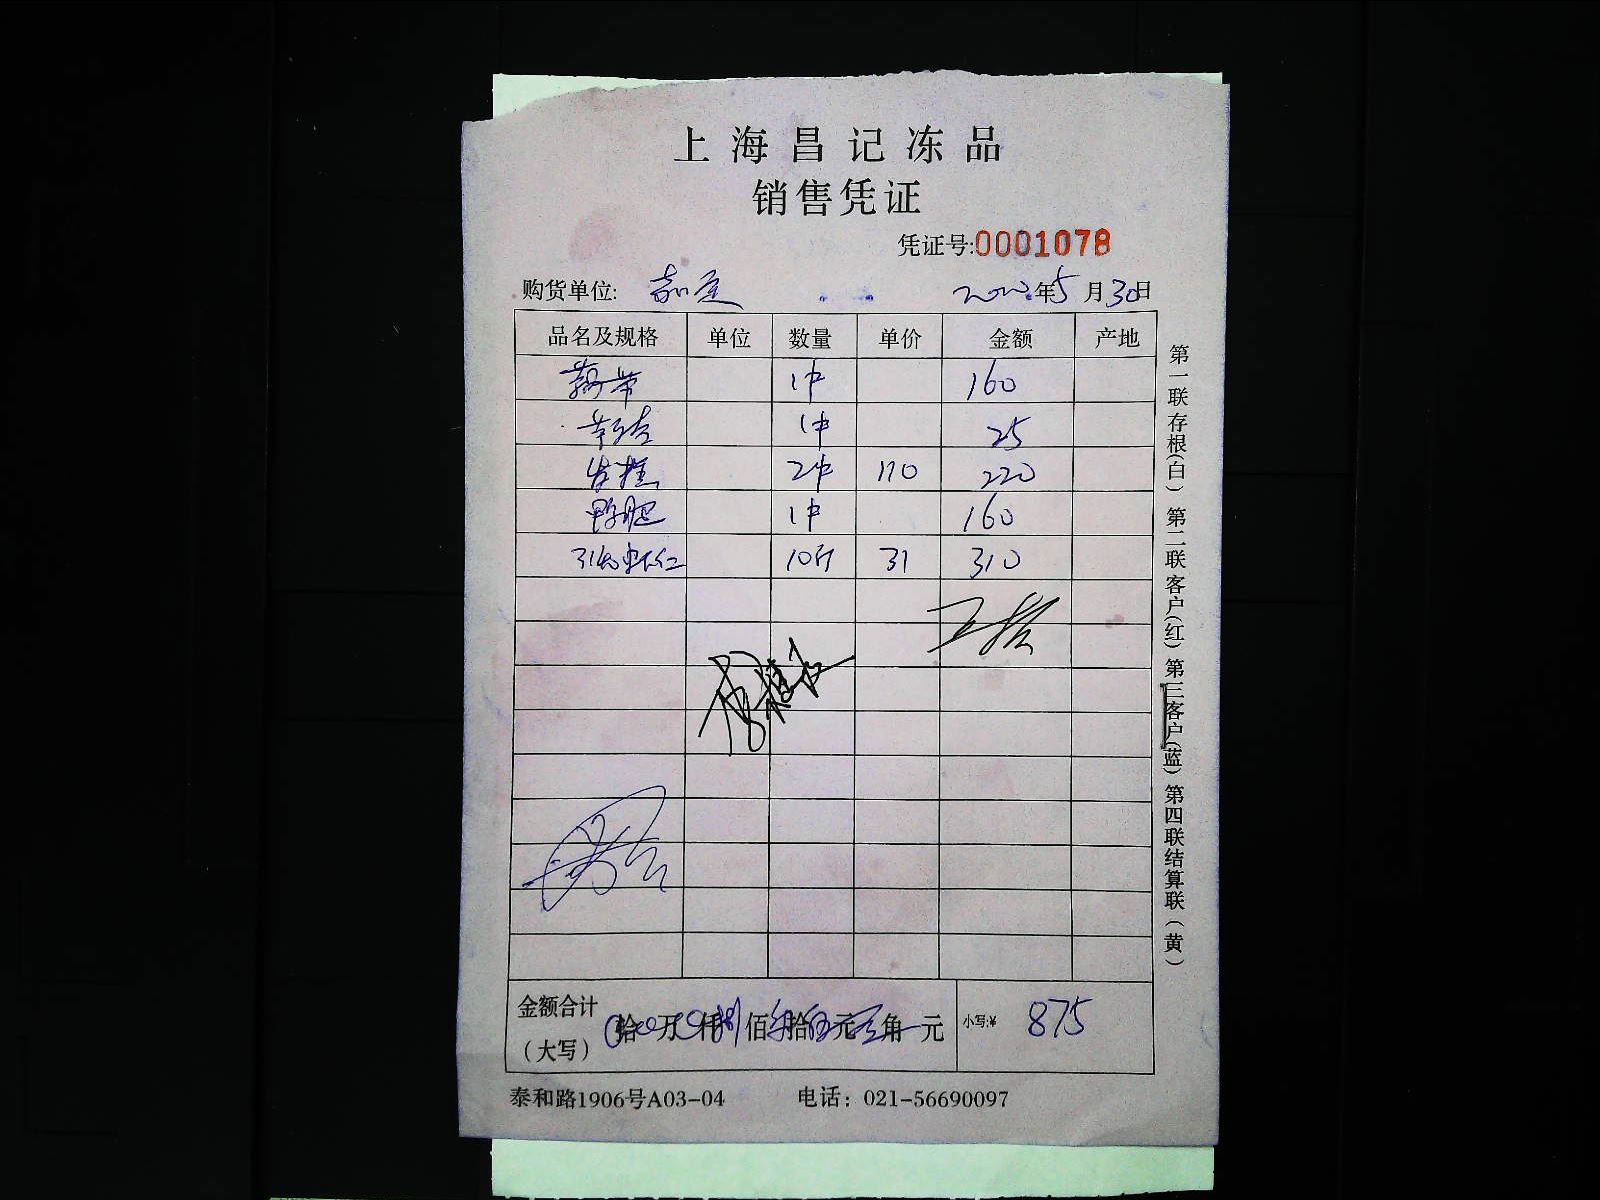 上海昌记冻品
销售凭证
凭证号:0001078
购货单位: 嘉 2020年5月30日
品名及规格 单位 数量 单价 金额 产地
藕带 1件 160
1件 25
2件 110 220
鸭肥 1件 160
虾仁 10斤 31 310
金额合计 拾 万 仟捌佰柒拾伍元 角 元 小写:¥ 875
（大写）
泰和路1906号A03-04 电话：021-56690097
第一联存根(白) 第二联客户(红) 第三客户(蓝) 第四联结算联(黄)